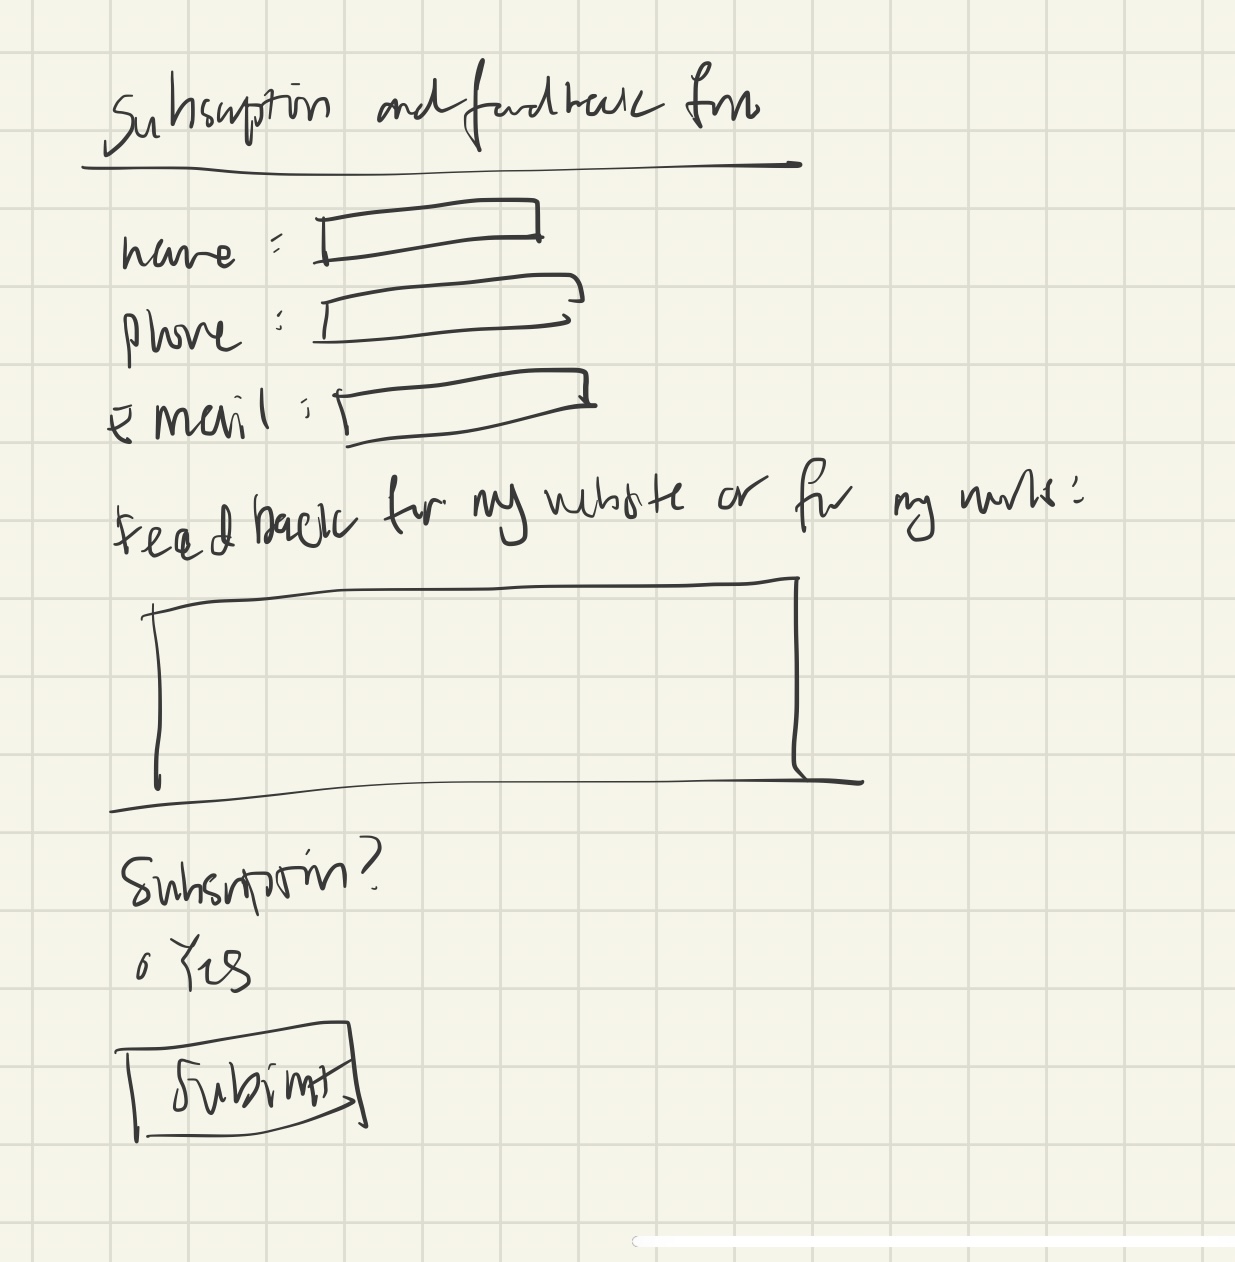 Subscription and feedback form
name :
phone :
Email :
Feedback for my website or for my work:
Subscription?
Yes
Subimt